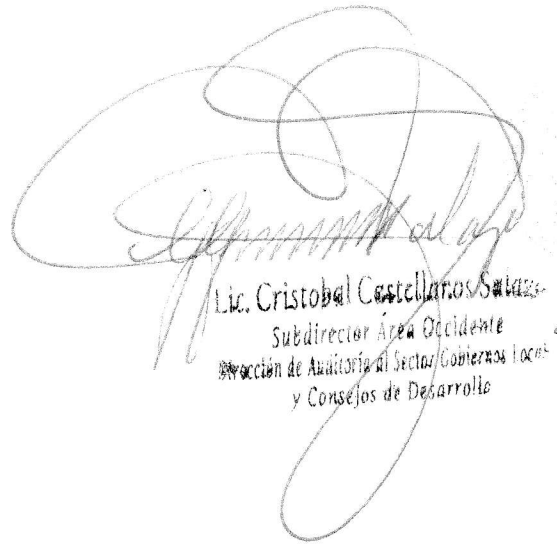 Lic. Cristobal Castellanos Salaza
Subdirector Área Occidente
Dirección de Auditoría al Sector Gobiernos Local
y Consejos de Desarrollo